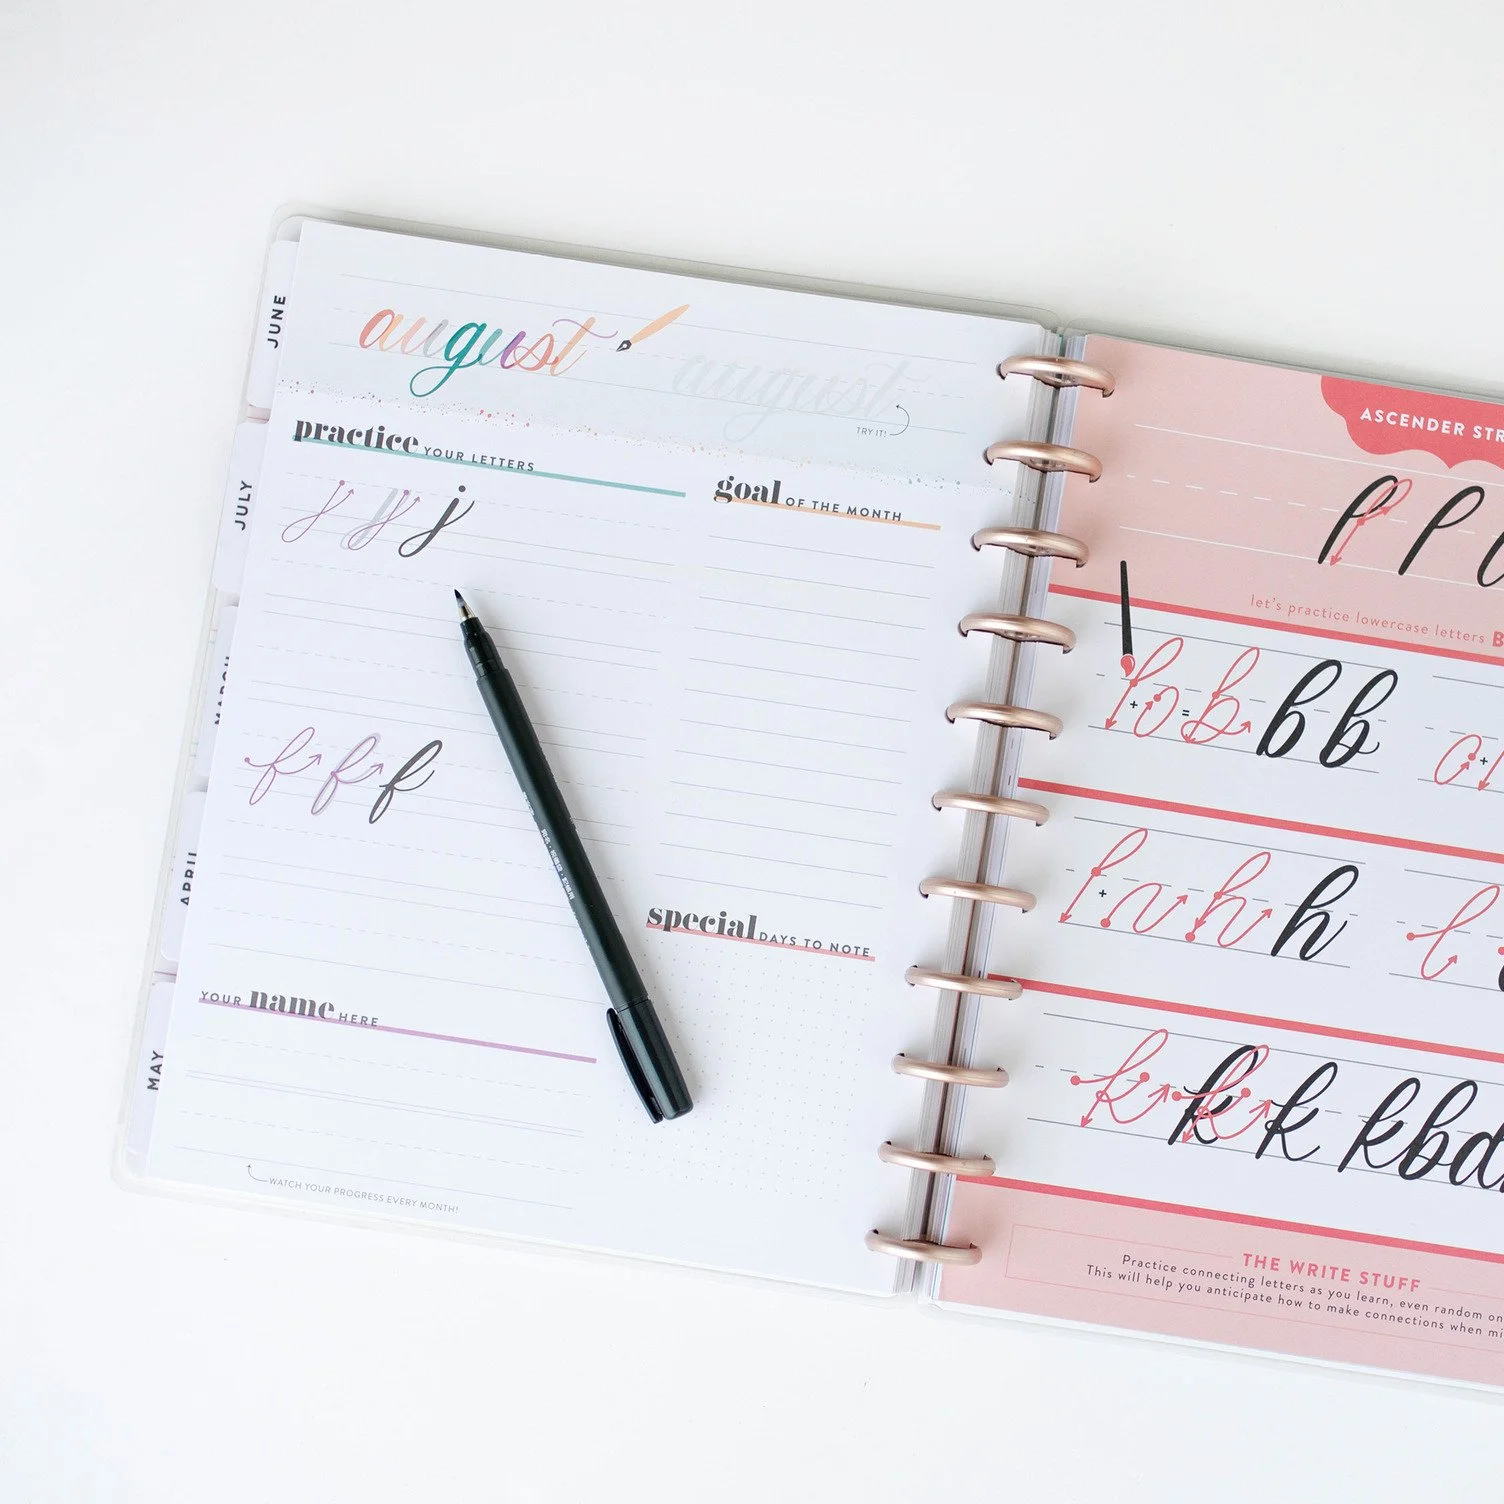 JUNE
JULY
MARCH
APRIL
MAY
august
august
TRY IT!
practice YOUR LETTERS
j j j
f f f
YOUR name HERE
WATCH YOUR PROGRESS EVERY MONTH!
goal OF THE MONTH
special DAYS TO NOTE
ASCENDER
let's practice lowercase letters
+ = b b b
+ h h
k k k kbd
THE WRITE STUFF
Practice connecting letters as you learn, even random
This will help you anticipate how to make connections when